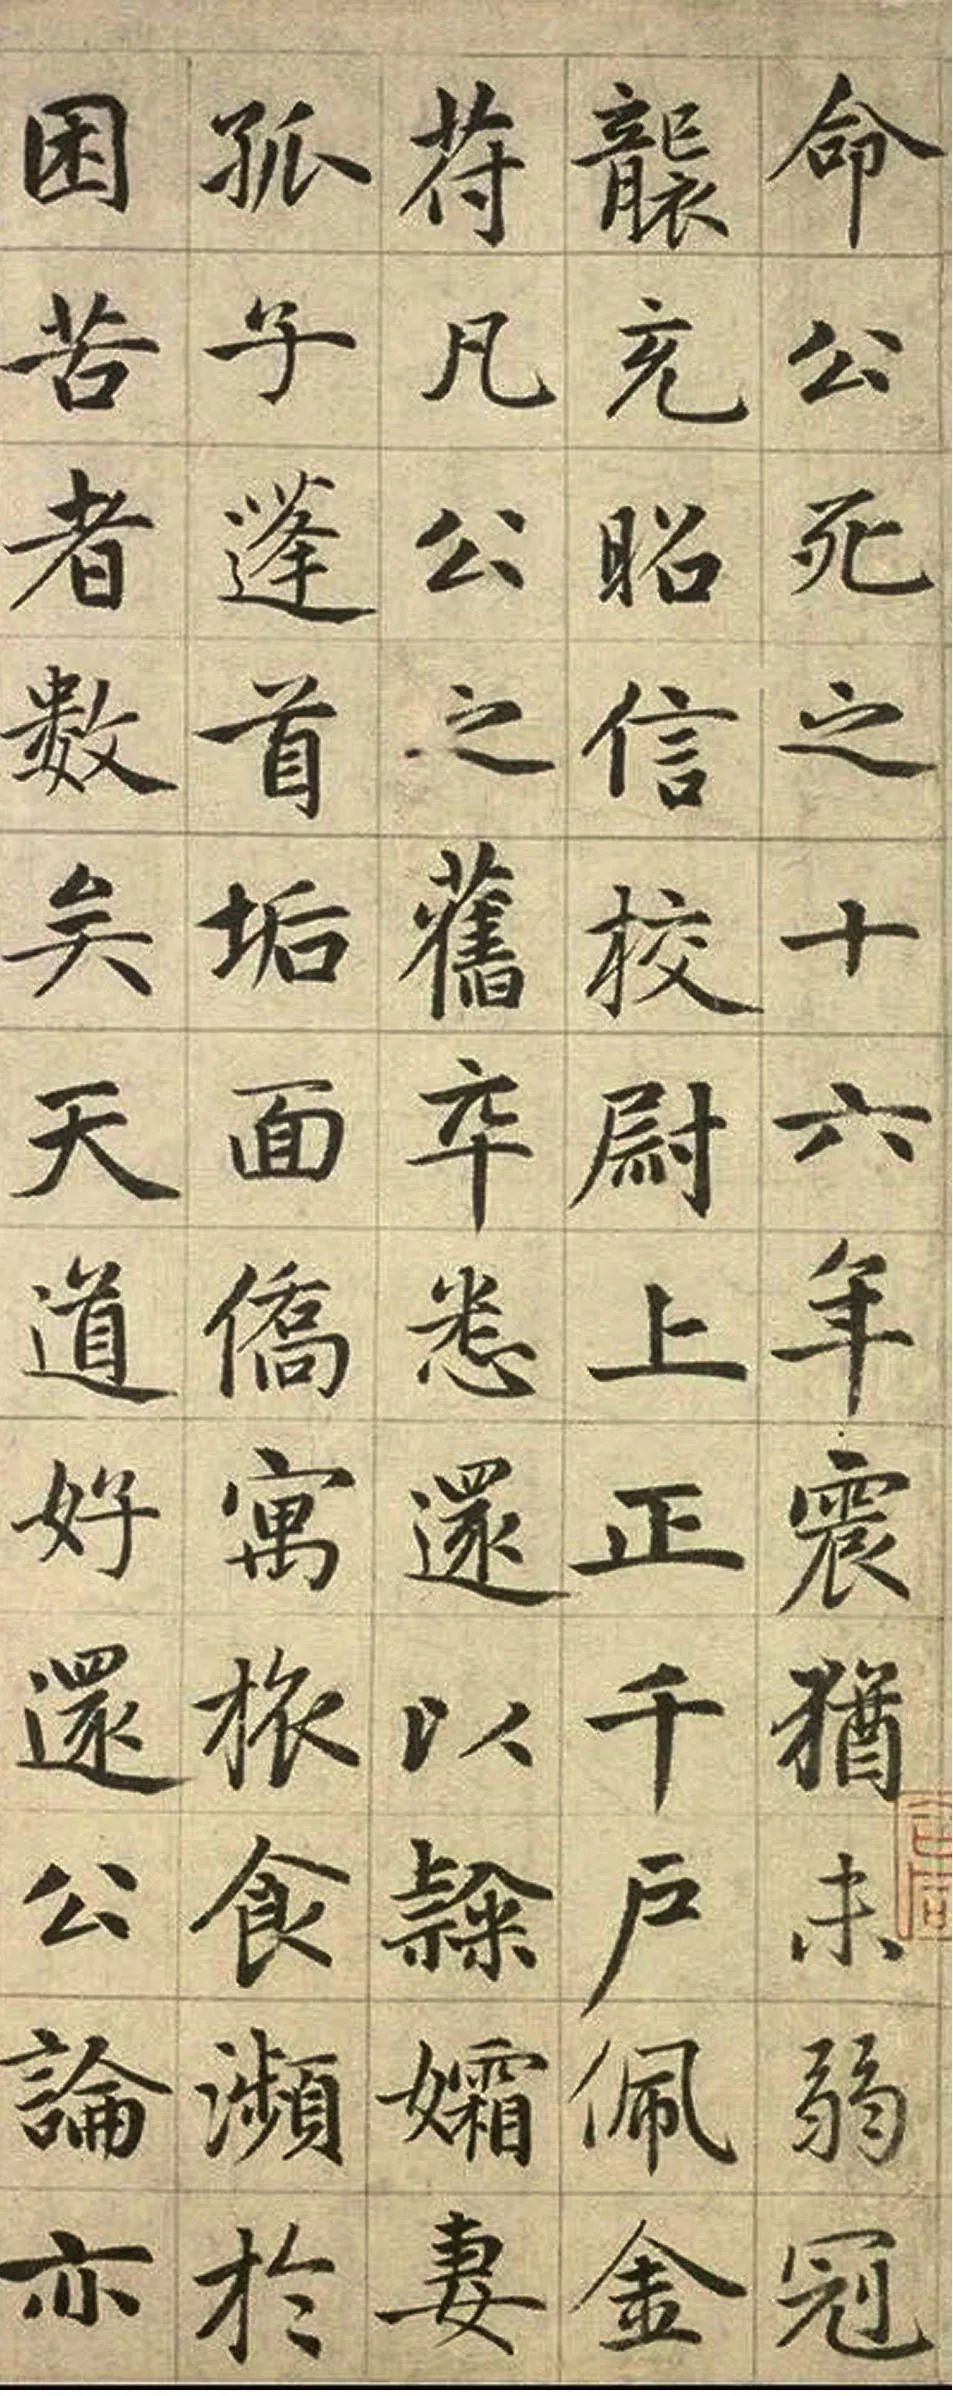 命公死之十六年震猶未弱冠
襲充昭信校尉上正千戶佩金
符凡公之舊卒悉還以隸孀妻
孤子蓬首垢面僑寓旅食瀕於
困苦者數矣天道好還公論亦